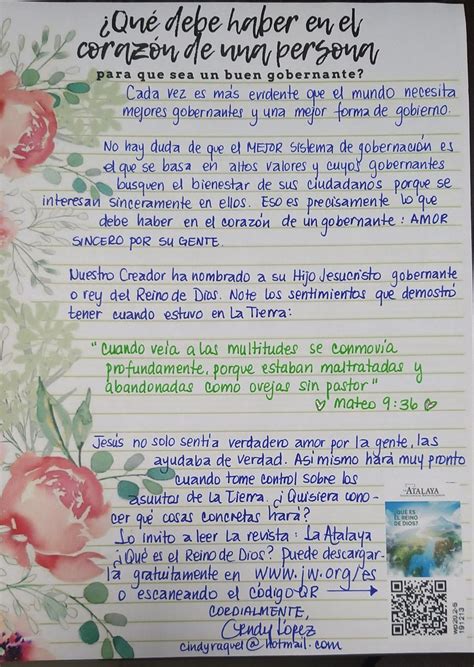 ¿Qué debe haber en el
corazón de una persona
para que sea un buen gobernante?
Cada vez es más evidente que el mundo necesita
mejores gobernantes y una mejor forma de gobierno.
No hay duda de que el MEJOR sistema de gobernación es
el que se basa en altos valores y cuyos gobernantes
busquen el bienestar de sus ciudadanos porque se
interesan sinceramente en ellos. Eso es precisamente lo que
debe haber en el corazón de un gobernante: AMOR
SINCERO POR SU GENTE.
Nuestro Creador ha nombrado a su Hijo Jesucristo gobernante
o rey del Reino de Dios. Note los sentimientos que demostró
tener cuando estuvo en La Tierra:
"Cuando veía a las multitudes se conmovía
profundamente, porque estaban maltratadas y
abandonadas como ovejas sin pastor"
♡ Mateo 9:36 ♡
Jesús no solo sentía verdadero amor por la gente, las
ayudaba de verdad. Asi mismo hará muy pronto
cuando tome control sobre los
asuntos de La Tierra. ¿Quisiera cono-
cer qué cosas concretas hará?
Lo invito a leer La revista: La Atalaya
¿Qué es el Reino de Dios? Puede descargar-
la gratuitamente en www.jw.org/es
o escaneando el código QR
CORDIALMENTE,
Cindy López
cindyraquel@hotmail.com
ATALAYA
¿QUÉ ES
EL REINO
DE DIOS?